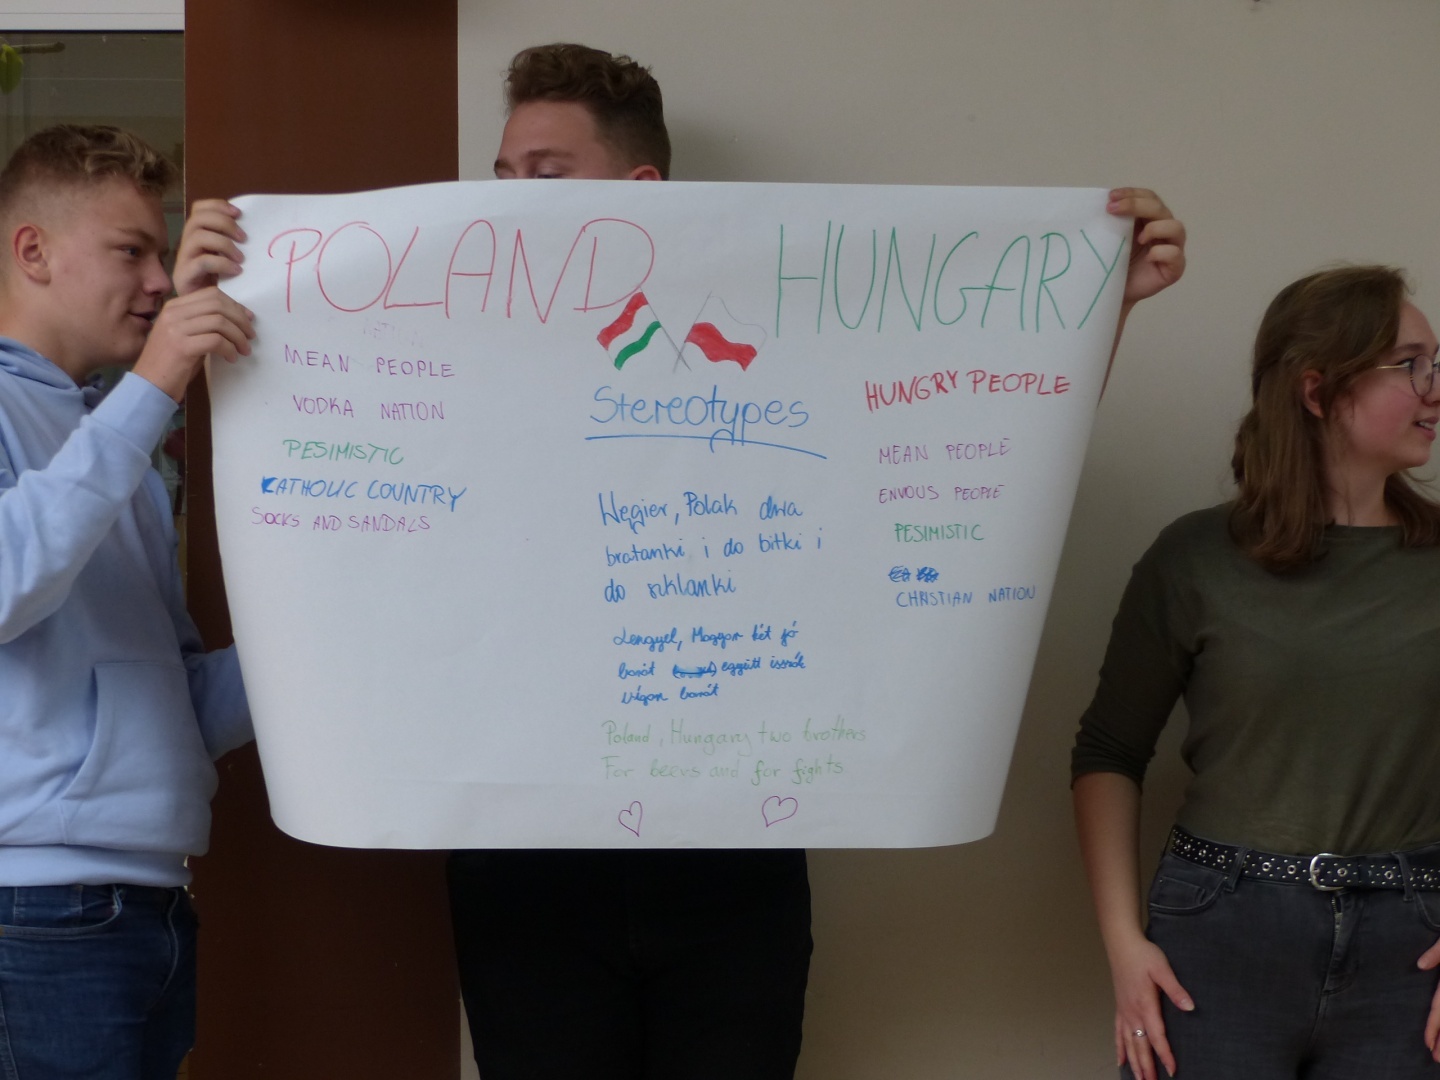 POLAND
HUNGARY
MEAN PEOPLE
VODKA NATION
PESIMISTIC
CATHOLIC COUNTRY
SOCKS AND SANDALS
Stereotypes
Węgier, Polak dwa
bratanki i do bitki i
do szklanki
Lengyel, Magyar két jó
barát együtt isszák
végan borát
Poland, Hungary two brothers
For beers and for fights
HUNGRY PEOPLE
MEAN PEOPLE
ENVOUS PEOPLE
PESIMISTIC
CHRISTIAN NATION